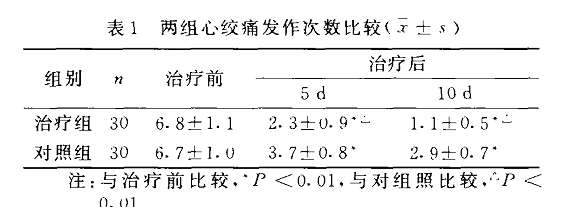 表1 两组心绞痛发作次数比较(x̄±s)
组别 n 治疗前 治疗后
5 d 10 d
治疗组 30 6.8±1.1 2.3±0.9*△ 1.1±0.5*△
对照组 30 6.7±1.0 3.7±0.8* 2.9±0.7*
注:与治疗前比较,*P<0.01,与对组照比较,△P<
0.01